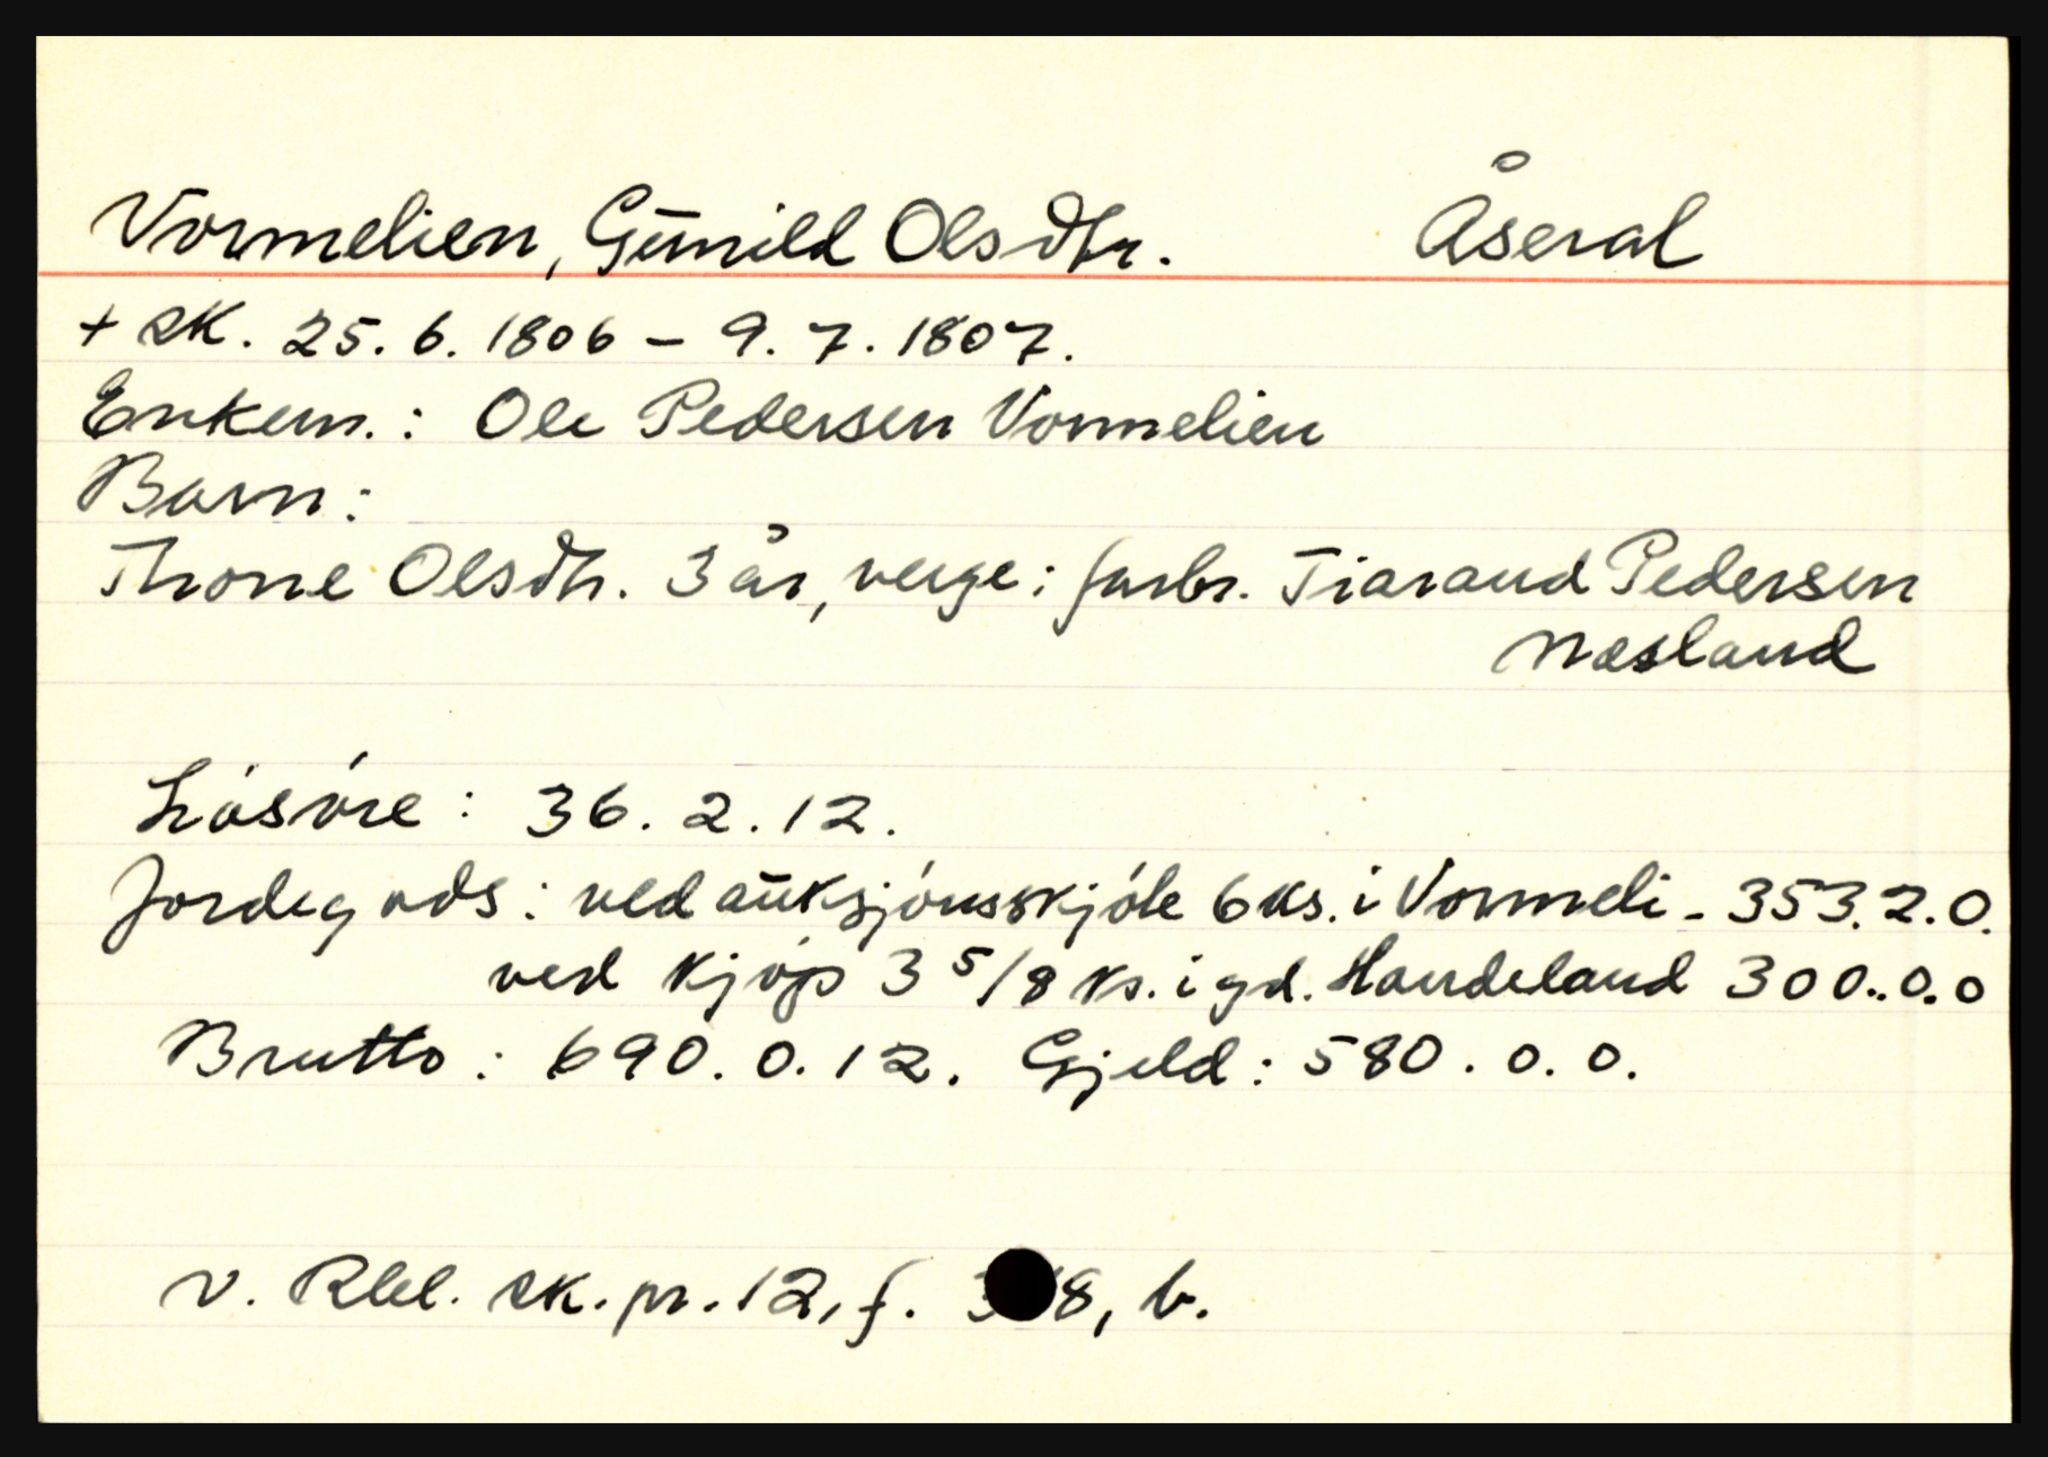 Vormelien, Gūnild Olsdtr. Åseral
+ sk. 25.6.1806 – 9.7.1807.
Enkem.: Ole Pedersen Vormelien
Barn:
Throne Olsdtr. 3 år, verge: farbr. Tiarand Pedersen
Næsland
Lósóre: 36.2.12.
Jordegods: ved aūksjónsskjóte 6 ks. i Vormeli - 353.2.0.
ved kjóp 3 5/8 ks. i gd. Handeland 300..0.0
Brutto: 690.0.12. Gjeld: 580.0.0.
V. Rbl. sk. pr. 12, f. 8, b.